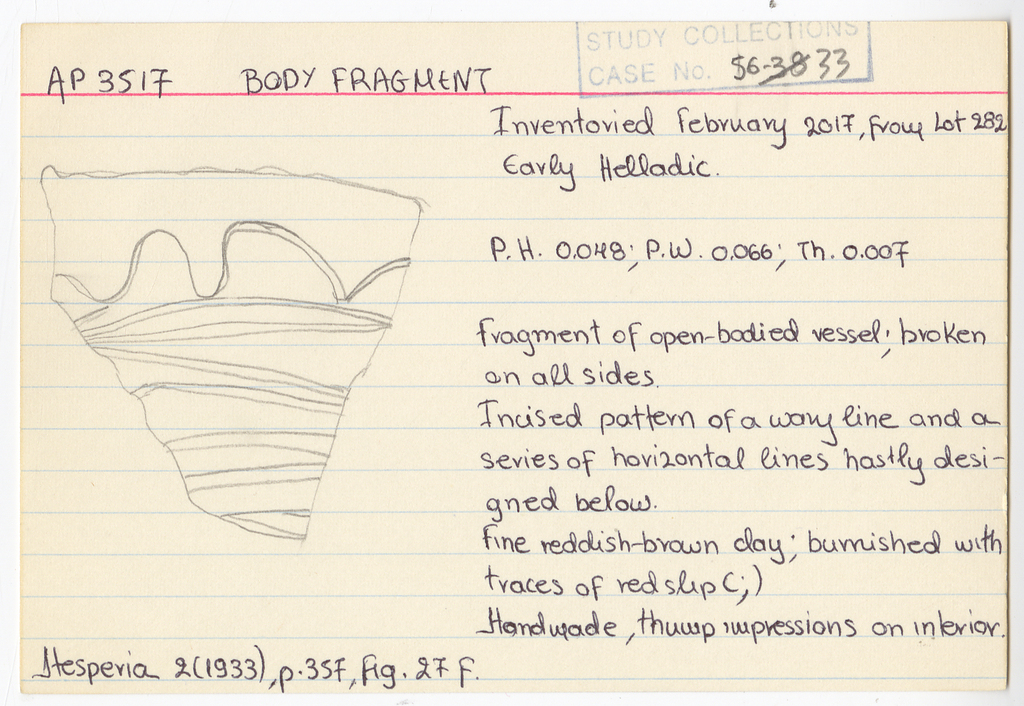 STUDY COLLECTIONS
CASE No. S6-3833
AP 3517 BODY FRAGMENT
Inventoried February 2017, from Lot 282
Early Helladic.
P.H. 0.048; P.W. 0.066; Th. 0.007
Fragment of open-bodied vessel; broken
on all sides.
Incised pattern of a wavy line and a
series of horizontal lines hastly desi-
gned below.
Fine reddish-brown clay; burnished with
traces of red slip (;)
Handmade, thump impressions on interior.
Hesperia 2(1933), p.357, fig. 27 f.